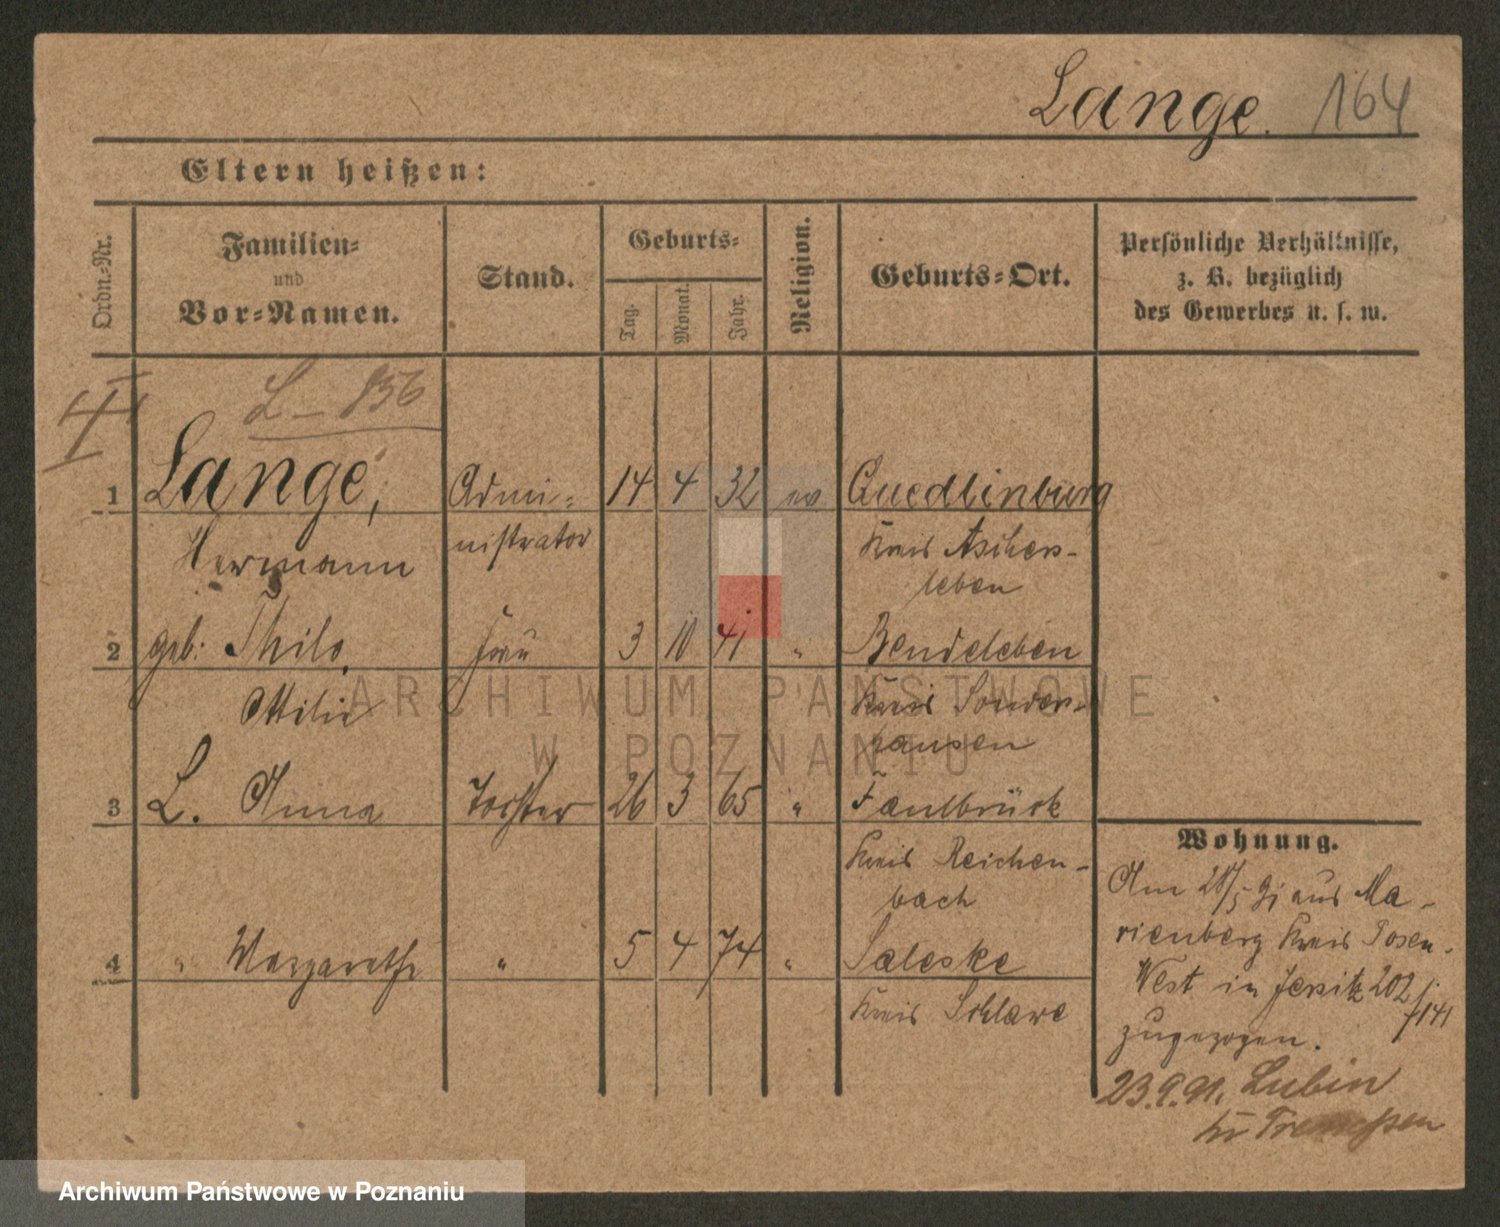 Lange. 164
Eltern heißen:
Ordn.-Nr.
Familien-
und
Vor-Namen.
Stand.
Geburts-
Tag.
Monat.
Jahr.
Religion.
Geburts-Ort.
Persönliche Verhältnisse,
z. B. bezüglich
des Gewerbes u. s. w.
L - 856
1 Lange, Admi- 14 4 32 ev Quedlinburg
Hermann nistrator Kreis Aschers-
leben
2 geb: Thilo, Frau 3 10 41 " Bendeleben
Ottilie Kreis Sonders-
hausen
3 L. Anna Tochter 26 3 65 " Faulbrück
Kreis Reichen-
bach
4 " Margarethe " 5 4 74 " Saleske
Kreis Schlawe
Wohnung.
Am 28/5 91 aus Ma-
rienberg Kreis Posen-
West in Jersitz 202
/141
zugezogen.
23.9.91. Lubin
Kr Tremessen
ARCHIWUM PAŃSTWOWE
W POZNANIU
Archiwum Państwowe w Poznaniu